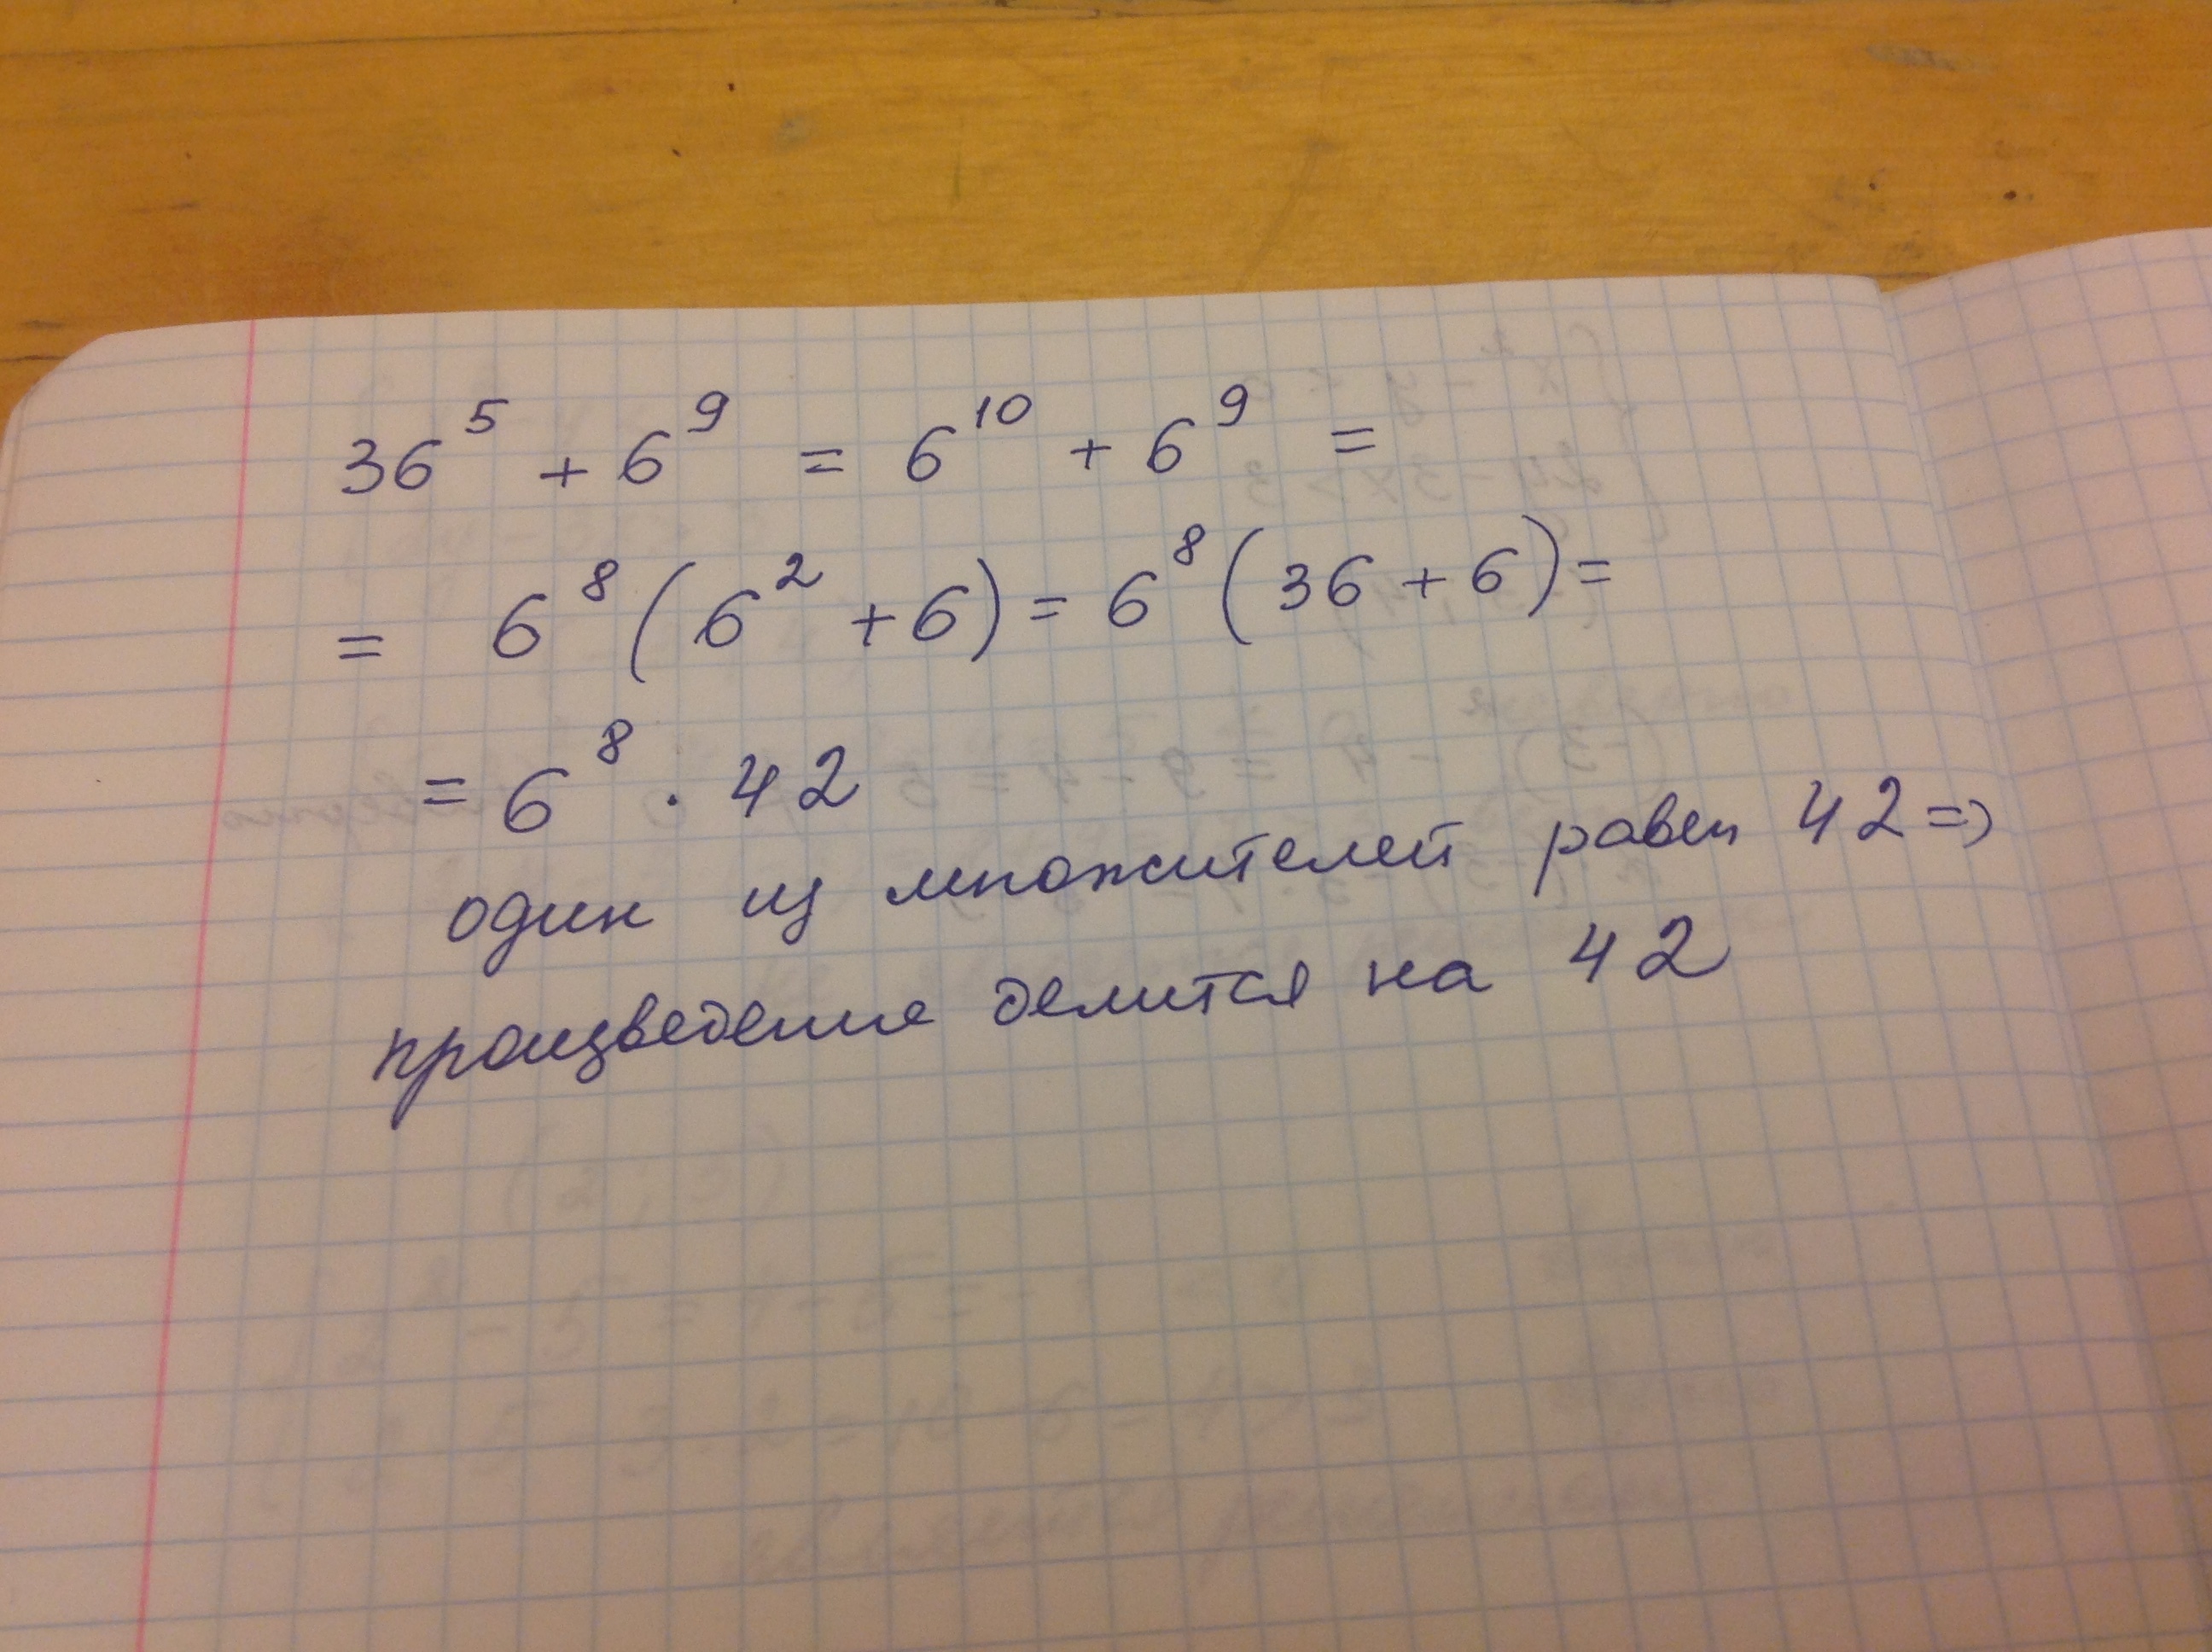 36⁵ + 6⁹ = 6¹⁰ + 6⁹ =
= 6⁸ (6² + 6) = 6⁸ (36 + 6) =
= 6⁸ · 42
один из множителей равен 42 =>
произведение делится на 42